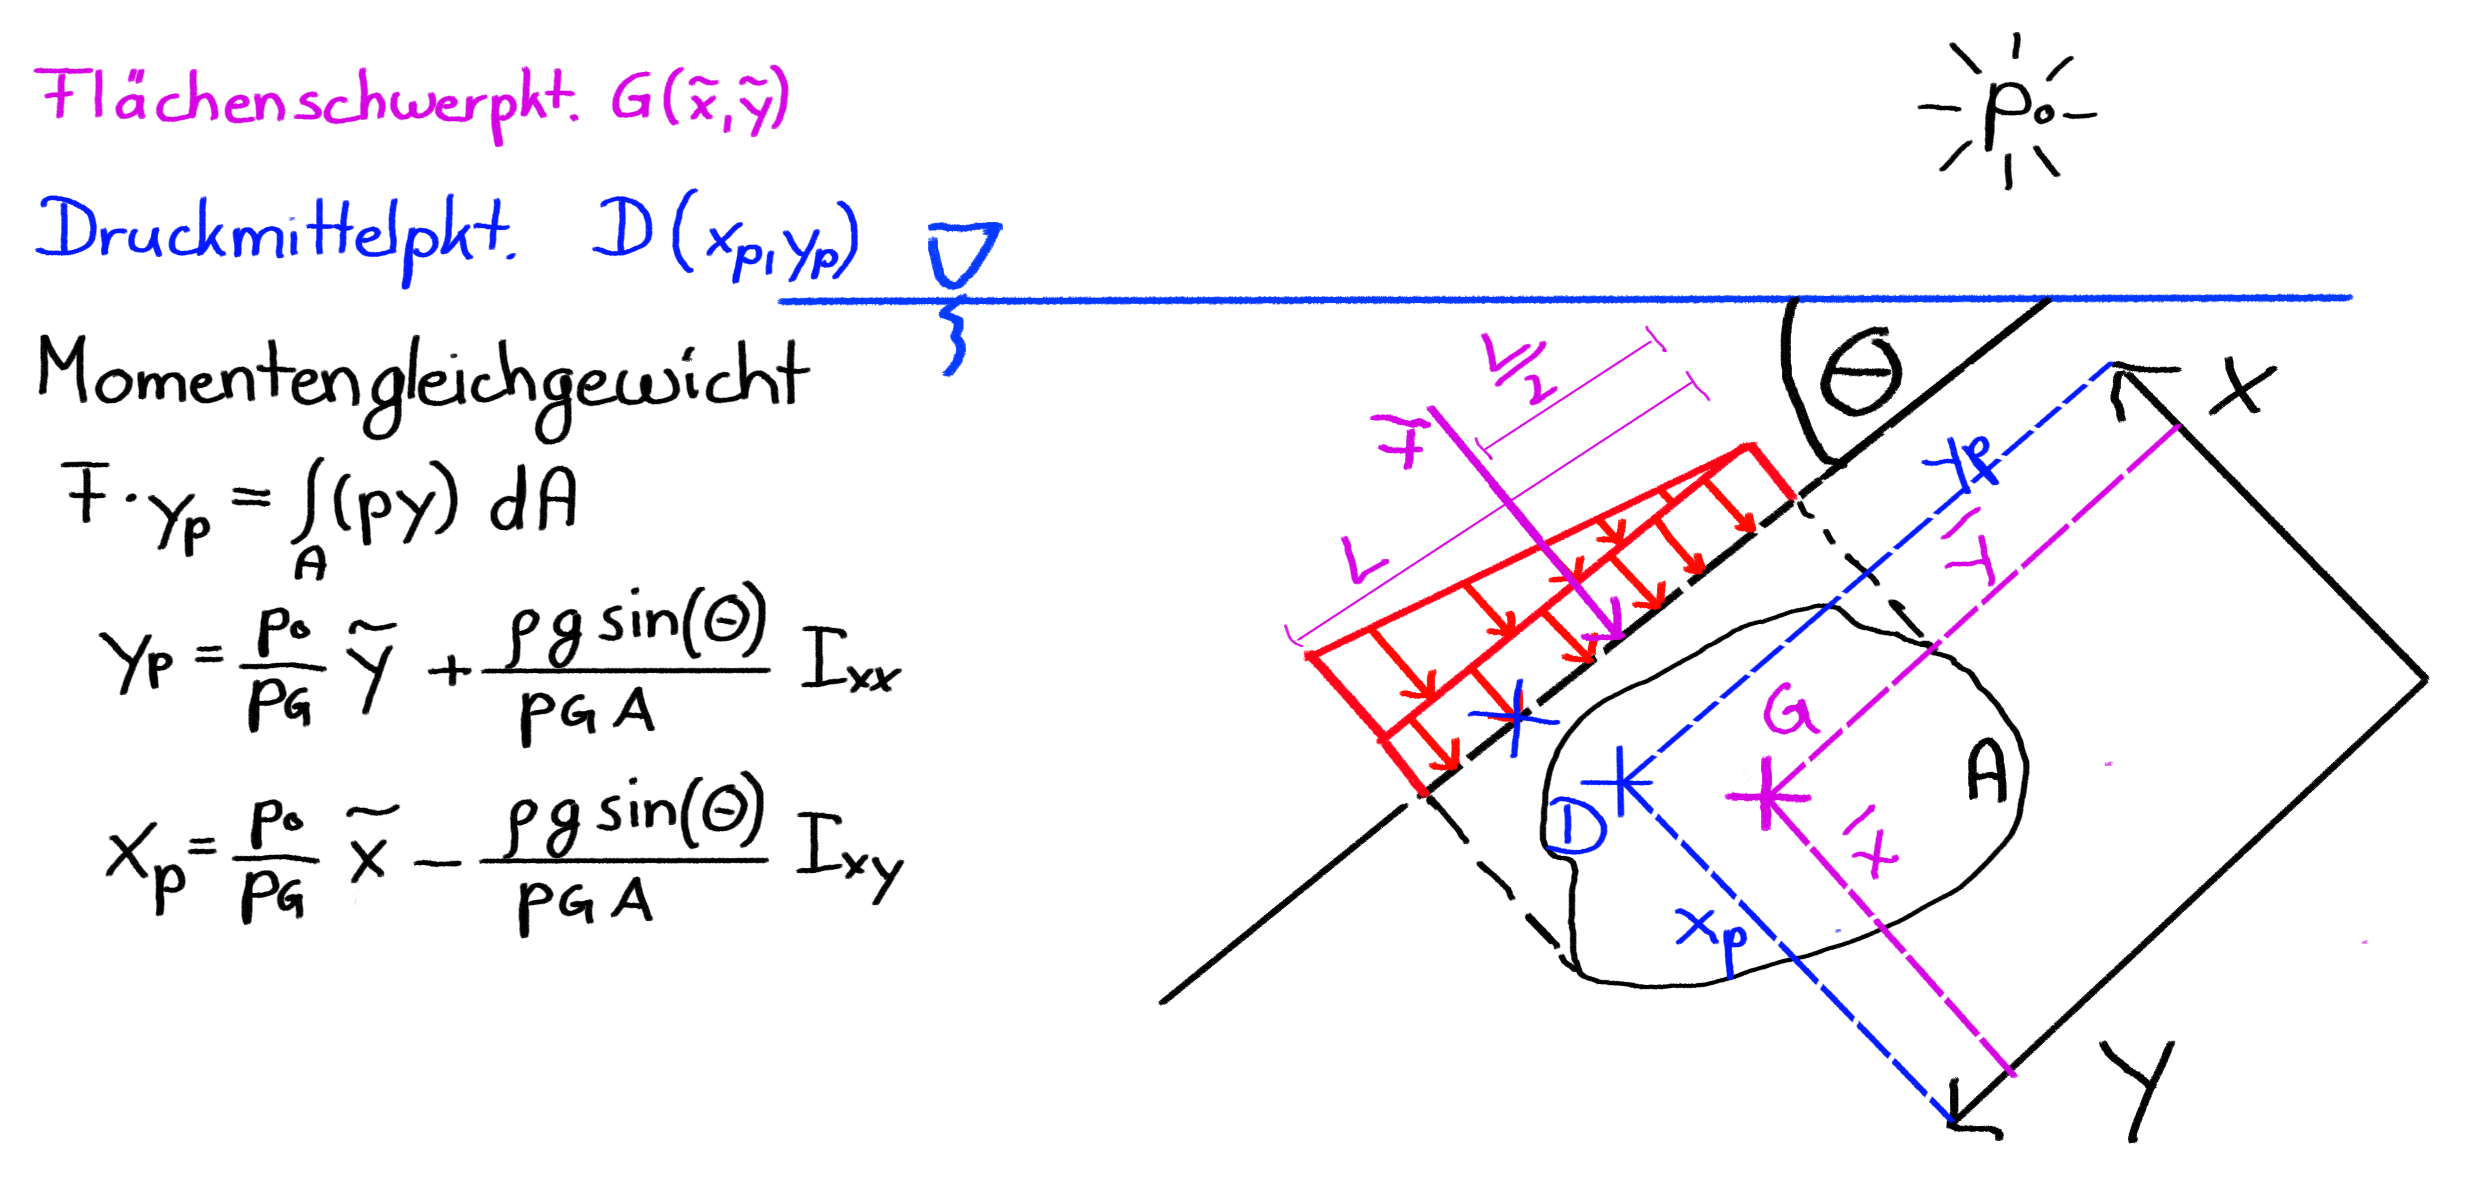 Flächenschwerpkt. G(x̃,ỹ)
Druckmittelpkt. D(xₚ,yₚ)
Momentengleichgewicht
F·yₚ = ∫_A (py) dA
yₚ = p₀/p_G ỹ + ρ g sin(Θ)/(p_G A) I_xx
xₚ = p₀/p_G x̃ − ρ g sin(Θ)/(p_G A) I_xy
p₀
Θ
L/2
F
L
X
yₚ
ỹ
G
A
D
x̃
xₚ
Y